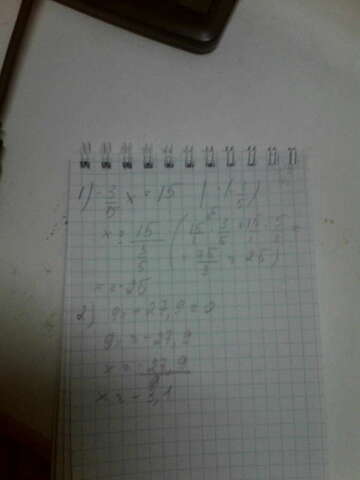 1) -3/5 x = 15 | : (3/5)
x = 15 / 3/5 ( 15/1 : 3/5 = 15/1 · 5/3 =
= 75/3 = 25 )
= -25
2) 9x + 27,9 = 0
9x = -27,9
x = -27,9 / 9
x = -3,1